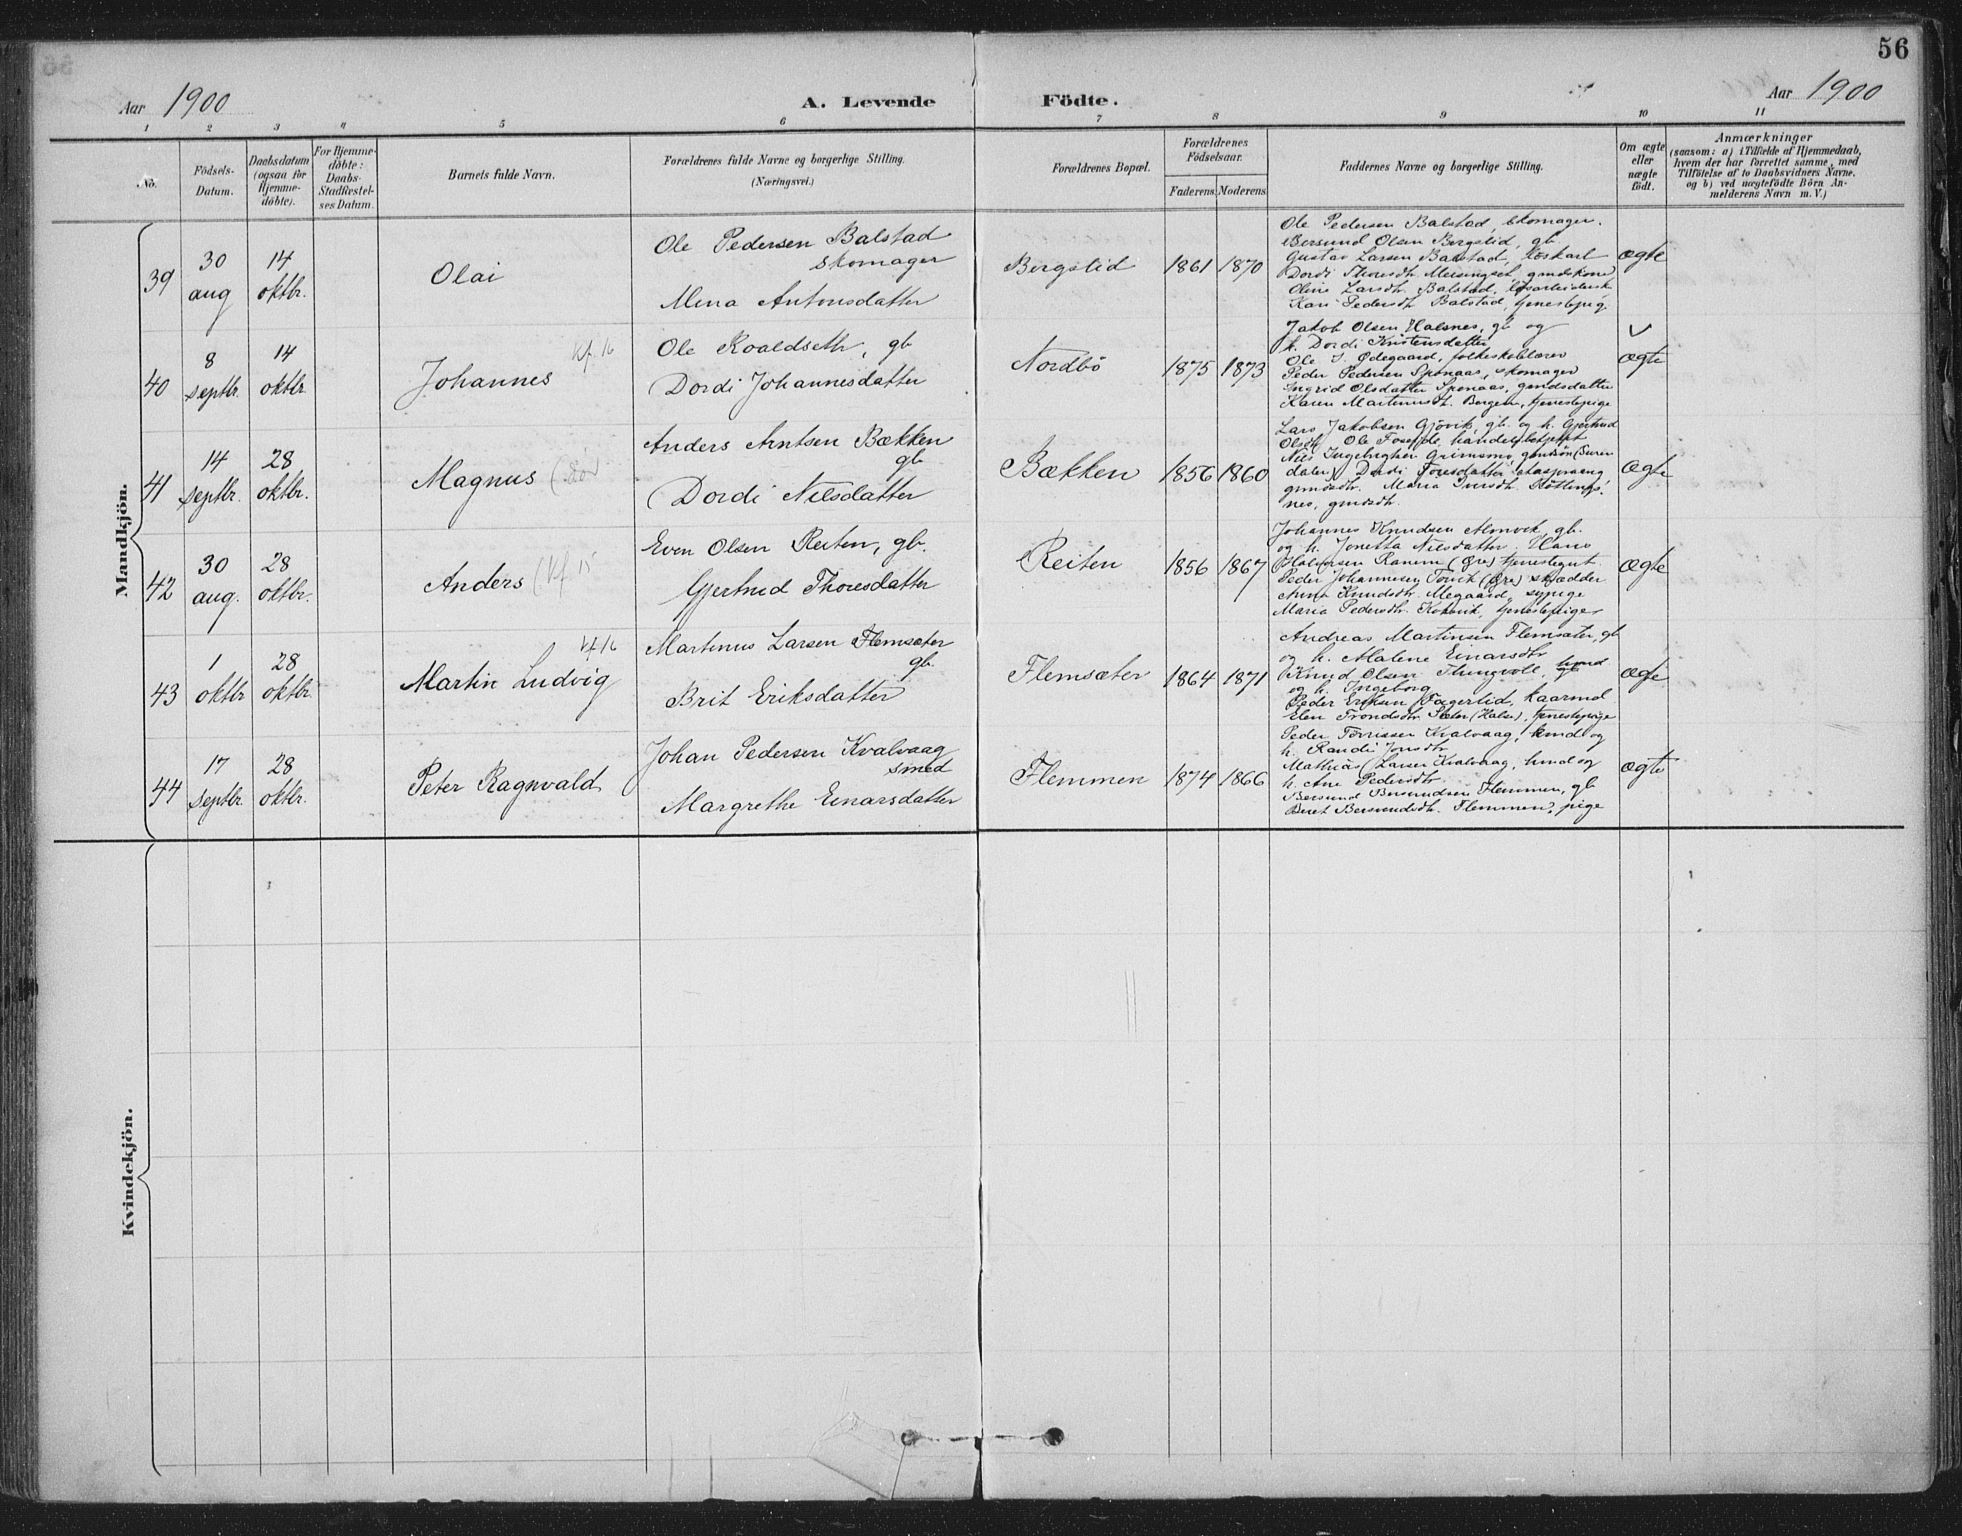 56
Aar 1900
A. Levende Födte.
Aar 1900
1 2 3 4 5 6 7 8 9 10 11
No.
Födsels-
Datum.
Daabsdatum
(ogsaa for
Hjemme-
döbte).
For Hjemme-
döbte:
Daabs-
Stadfæstel-
ses Datum.
Barnets fulde Navn.
Forældrenes fulde Navne og borgerlige Stilling.
(Næringsvei.)
Forældrenes Bopæl.
Forældrenes
Födselsaar.
Faderens. Moderens.
Faddernes Navne og borgerlige Stilling.
Om ægte
eller
uægte
födt.
Anmærkninger
(saasom: a) i Tilfælde af Hjemmedaab,
hvem der har forrettet samme, med
Tilföielse af to Daabsvidners Navne.
og b) ved uægtefödte Börn An-
melderens Navn m. V.)
Mandkjön.
39
30
aug
14
oktbr.
Olai
Ole Pedersen Balstad
skomager
Mena Antonsdatter
Bergslid
1861 1870
Ole Pedersen Balstad, skomager.
Bersund Olsen Bergslid, gb
Gustav Larsen Balstad, löskarl
Dordi Thoresdtr. Meisingset, gmdskone
Oline Larsdtr. Balstad, lösarbeidersk
Kari Pedersdtr. Balstad, tjenestepig
ægte
40
8
septbr.
14
oktbr.
Johannes
Kf. 16
Ole Roaldseth, gb
Dordi Johannesdatter
Nordbö
1875 1873
Jakob Olsen Halsnes, gb og
h. Dordi Kristensdatter
Ole J. Ødegaard, folkeskolelærer
Peder Pedersen Sponaas, skomager
Ingrid Olsdatter Sponaas, gmdsdatter
Karen Martinusdtr. Bergem, tjenestepige
ægte
41
14
septbr.
28
oktbr.
Magnus (död
Anders Arntsen Bækken
gb
Dordi Nilsdatter
Bækken
1856 1860
Lars Jakobsen Gjövik, gb. og h. Gjertrud
Olsdtr. Ole Foseide, handelsbetjent
Nils Ingebrigtsen Grimsmo, gmdssön (Suren
dalen) Dordi Toresdatter
gmdsdtr. Maria Iversdtr.
nes, gmdsdtr.
ægte
42
30
aug.
28
oktbr.
Anders (Kf 15
Even Olsen Reiten, gb.
Gjertrud Thoresdatter
Reiten
1856 1867
Johannes Knudsen Almvik, gb.
og h. Jonetta Nilsdatter. Hans
Halvorsen Ranem (Øre) tjenestegut.
Peder Johannesen Torvik (Øre) skrædder
Anna Knudsdtr. Megaard, sypige
Maria Pedersdtr. Koksvik, tjenestepige
ægte
43
1
oktbr
28
oktbr.
Martin Ludvig
Kf 16
Martinus Larsen Flemsæter
gb.
Brit Eriksdatter
Flemsæter
1864 1871
Andreas Martinsen Flemsæter, gb
og h. Malene Einarsdtr
Knud Olsen Thungvold, hmd
og h. Ingeborg
Peder Eriksen Fagerlid, kaarmd
Elen Trondsdtr. Sæter (Halse), tjenestepige
ægte
44
17
septbr.
28
oktbr.
Peter Ragnvald
Johan Pedersen Kvalvaag
smed
Margrethe Einarsdatter
Flemmen
1874 1866
Peder Torrissen Kvalvaag, hmd og
h. Randi Jonsdtr
Mathias Larsen Kvalvaag, hmd og
h. Ane Pedersdtr.
Bersund Bersundsen Flemmen, gb
Beret Bersundsdtr. Flemmen, pige
ægte
Kvindekjön.